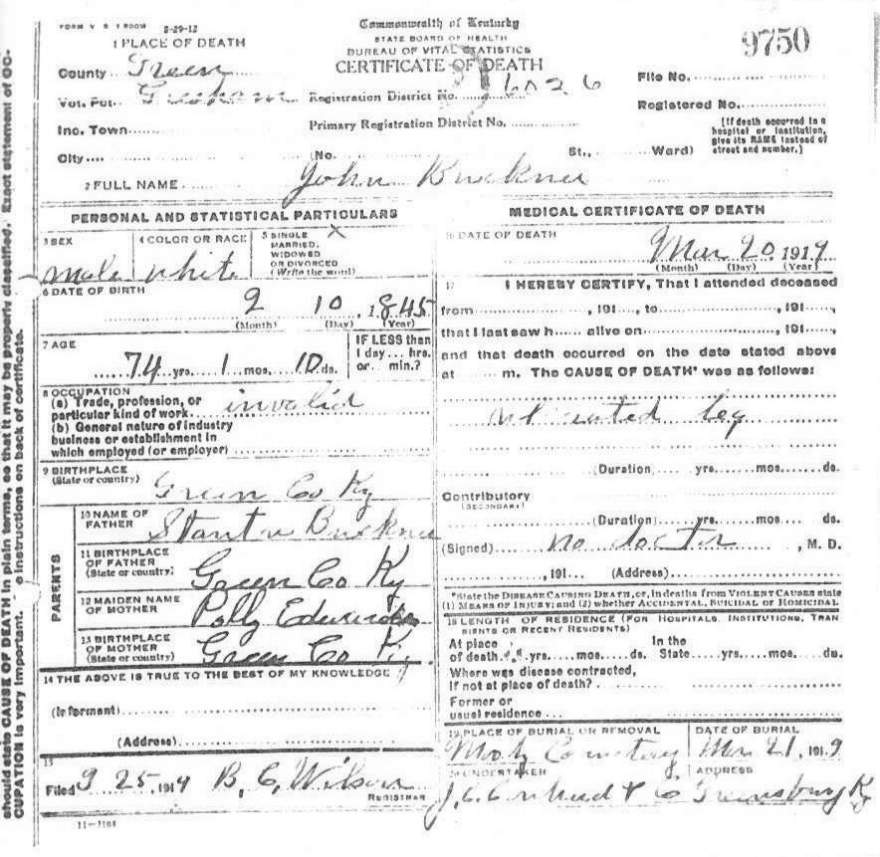 FORM V. S. 1 500M 8-29-12
Commonwealth of Kentucky
STATE BOARD OF HEALTH
BUREAU OF VITAL STATISTICS
CERTIFICATE OF DEATH
9750
1 PLACE OF DEATH
County Green
Vot. Pct. Gresham Registration District No. 6026
File No.
Registered No.
Inc. Town Primary Registration District No.
[If death occurred in a hospital or institution, give its NAME instead of street and number.]
City (No. St., Ward)
2 FULL NAME John Buckner
PERSONAL AND STATISTICAL PARTICULARS
3 SEX male
4 COLOR OR RACE white
5 SINGLE X
MARRIED,
WIDOWED
OR DIVORCED
(Write the word)
6 DATE OF BIRTH
2 10, 1845
(Month) (Day) (Year)
7 AGE
74 yrs. 1 mos. 10 ds.
IF LESS than
1 day... hrs.
or... min.?
8 OCCUPATION
(a) Trade, profession, or
particular kind of work invalid
(b) General nature of industry
business or establishment in
which employed (or employer)
9 BIRTHPLACE
(State or country)
Green Co Ky
PARENTS
10 NAME OF
FATHER Buckner
11 BIRTHPLACE
OF FATHER
(State or country) Green Co Ky
12 MAIDEN NAME
OF MOTHER Polly Edwards
13 BIRTHPLACE
OF MOTHER
(State or country) Green Co Ky
14 THE ABOVE IS TRUE TO THE BEST OF MY KNOWLEDGE
(Informant)
(Address)
15
Filed 9 25, 1919 B. C. Wilson
REGISTRAR
11-3184
MEDICAL CERTIFICATE OF DEATH
16 DATE OF DEATH
Mar 20 1919
(Month) (Day) (Year)
17 I HEREBY CERTIFY, That I attended deceased
from, 191, to, 191,
that I last saw h alive on, 191,
and that death occurred on the date stated above
at m. The CAUSE OF DEATH* was as follows:
leg
(Duration) yrs. mos. ds.
Contributory
(SECONDARY)
(Duration) yrs. mos. ds.
(Signed) no doctor, M. D.
, 191 (Address)
*State the DISEASE CAUSING DEATH, or, in deaths from VIOLENT CAUSES state
(1) MEANS OF INJURY; and (2) whether ACCIDENTAL, SUICIDAL or HOMICIDAL
18 LENGTH OF RESIDENCE (FOR HOSPITALS, INSTITUTIONS, TRAN
SIENTS OR RECENT RESIDENTS)
At place In the
of death yrs. mos. ds. State yrs. mos. ds.
Where was disease contracted,
if not at place of death?
Former or
usual residence
19 PLACE OF BURIAL OR REMOVAL DATE OF BURIAL
Cemetery Mar 21, 1919
20 UNDERTAKER ADDRESS
& Co Greensburg Ky
should state CAUSE OF DEATH in plain terms, so that it may be properly classified. Exact statement of OC-
CUPATION is very important. instructions on back of certificate.